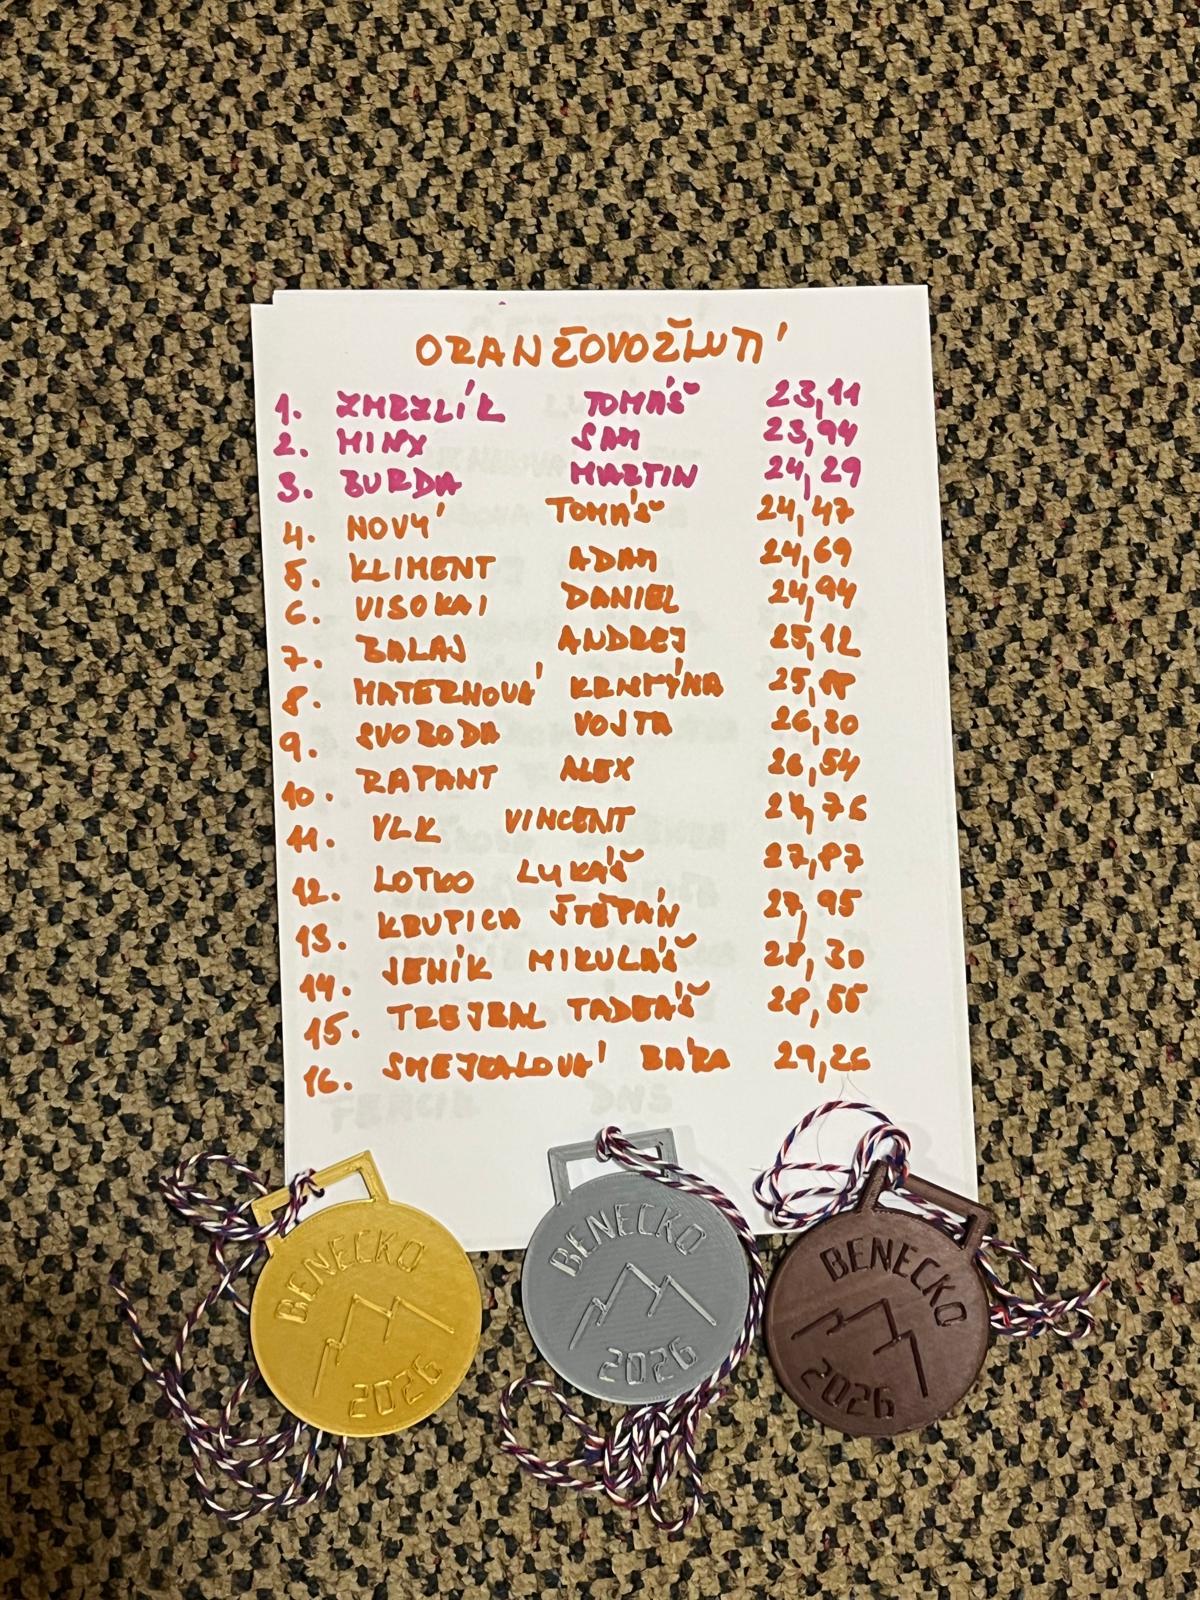 ORANŽOVOŽLUTÍ
1. ZMRZLÍK TOMÁŠ 23,11
2. MINX SAM 23,94
3. BURDA MARTIN 24,29
4. NOVÝ TOMÁŠ 24,47
5. KLIMENT ADAM 24,69
6. VISOKAI DANIEL 24,94
7. BALAJ ANDREJ 25,12
8. MATERNOVÁ 25,88
9. SVOBODA VOJTA 26,30
10. RAPANT ALEX 26,54
11. VLK VINCENT
12. LOTKO LUKÁŠ 27,87
13. KRUPICA ŠTĚPÁN 27,95
14. JENÍK MIKULÁŠ 28,30
15. TREJBAL TADEÁŠ 28,55
16. SMEJKALOVÁ BÁRA 29,26
BENECKO
2026
BENECKO
2026
BENECKO
2026